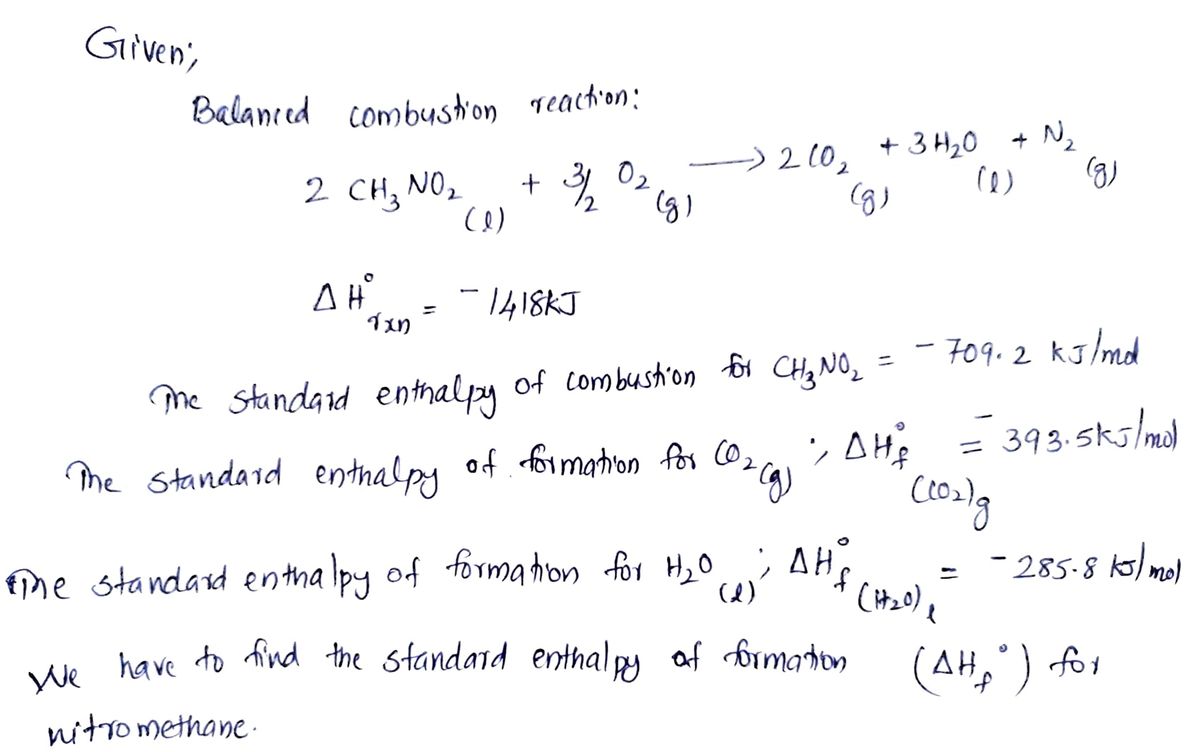 Given;
Balanced combustion reaction:
2 CH₃NO₂(l) + 3/2 O₂(g) ⟶ 2CO₂(g) + 3H₂O(l) + N₂(g)
ΔH°rxn = -1418kJ
The standard enthalpy of combustion for CH₃NO₂ = -709.2 kJ/mol
The standard enthalpy of formation for CO₂(g); ΔH°f (CO₂)g = -393.5kJ/mol
The standard enthalpy of formation for H₂O(l); ΔH°f (H₂O)l = -285.8 kJ/mol
We have to find the standard enthalpy of formation (ΔHf°) for
nitromethane.